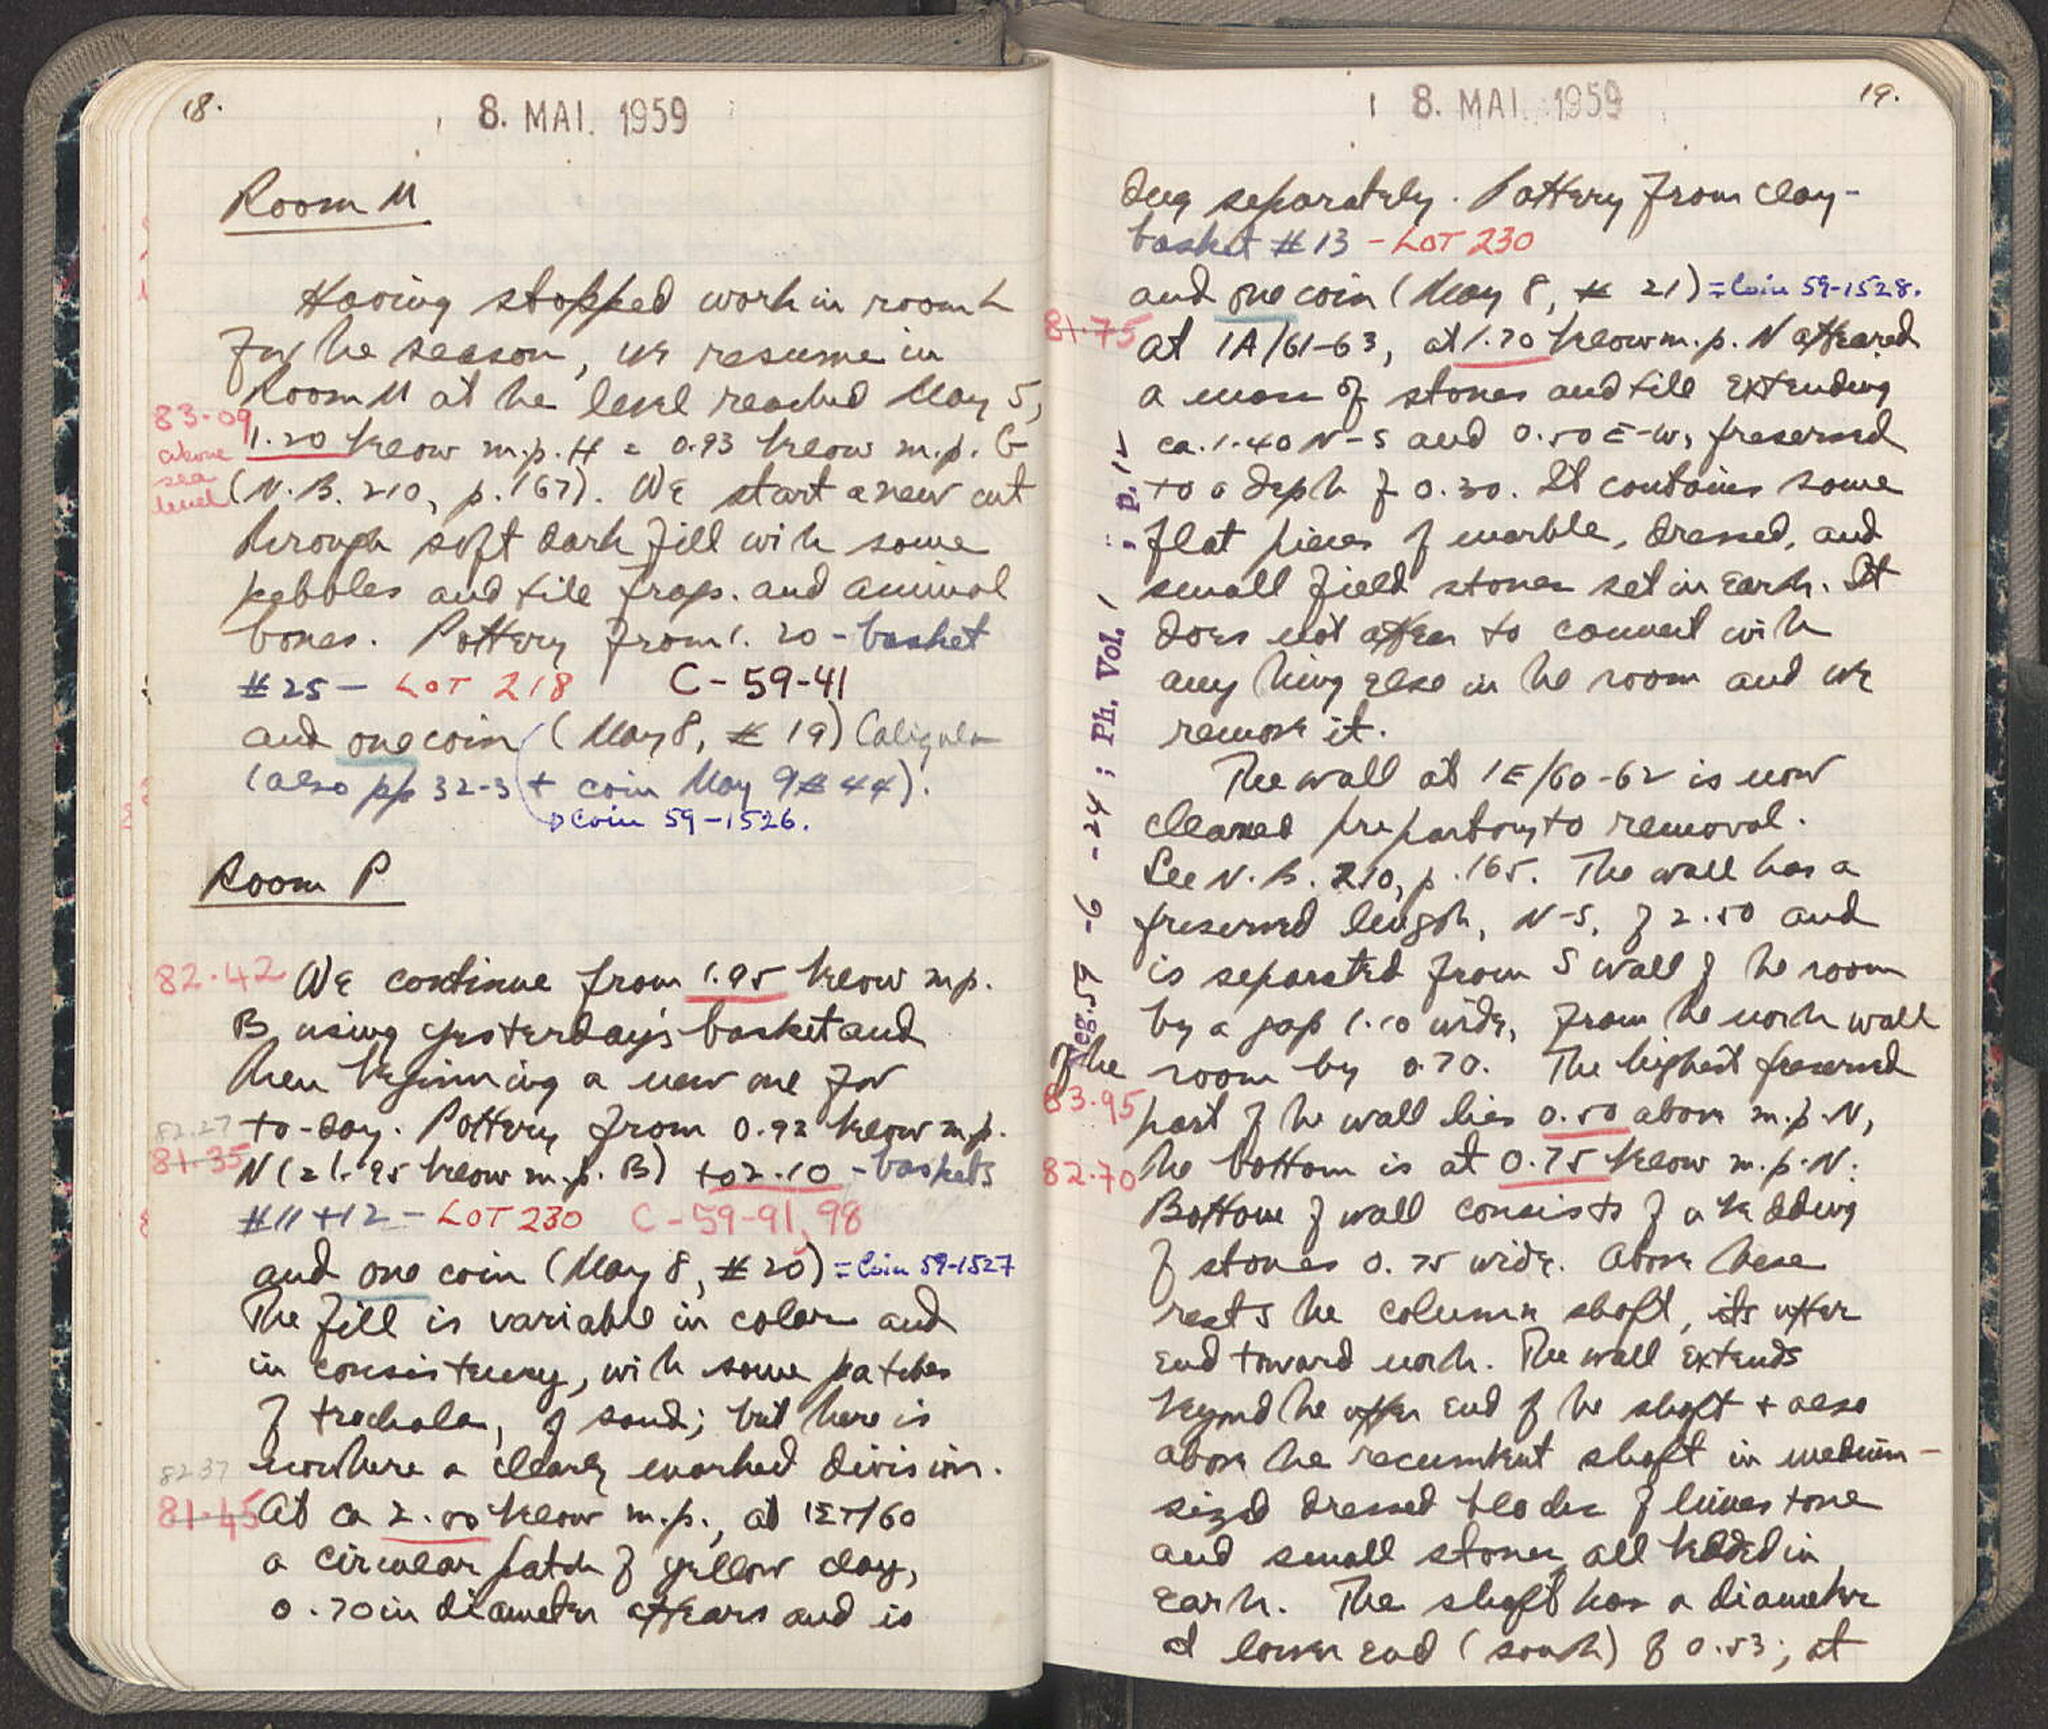 18.
8. MAI. 1959
Room M
Having stopped work in room L
for the season, we resume in
Room M at the level reached May 5,
83.09
above
sea
level
1.20 below m.p. H = 0.93 below m.p. G
(N.B. 210, p. 167). We start a new cut
through soft dark fill with some
pebbles and tile frags. and animal
bones. Pottery from 1.20 - basket
#25 - LOT 218 C-59-41
and one coin (May 8, # 19) Caligula
(also pp 32-3 + coin May 9 # 44).
coin 59-1526.
Room P
82.42 We continue from 1.95 below m.p.
B, using yesterday's basket and
then beginning a new one for
82.27 to-day. Pottery from 0.92 below m.p.
81.35 N (=1.95 below m.p. B) to 2.10 - baskets
#11+12 - LOT 230 C-59-91, 98
and one coin (May 8, # 20) = Coin 59-1527
The fill is variable in color and
in consistency, with some patches
of trochala, of sand; but there is
82.37 nowhere a clearly marked division.
81.45 At ca 2.00 below m.p., at 1ET/60
a circular patch of yellow clay,
0.70 in diameter appears and is
8. MAI. 1959
19.
dug separately. Pottery from clay -
basket #13 - LOT 230
and one coin (May 8, # 21) = Coin 59-1528.
81.75 at 1A/61-63, at 1.70 below m.p. N appeared
a mass of stones and tile extending
ca. 1.40 N-S and 0.50 E-W, preserved
to a depth of 0.30. It contains some
flat pieces of marble, dressed, and
small field stones set in earth. It
does not appear to connect with
any thing else in the room and we
remove it.
The wall at 1E/60-62 is now
cleaned preparatory to removal.
See N.B. 210, p. 165. The wall has a
preserved length, N-S, of 2.50 and
is separated from S wall of the room
by a gap 1.10 wide, from the north wall
of the room by 0.70. The highest preserved
83.95 part of the wall lies 0.50 above m.p. N,
82.70 the bottom is at 0.75 below m.p. N.
Bottom of wall consists of a bedding
of stones 0.75 wide. Above these
rests the column shaft, its upper
end toward north. The wall extends
beyond the upper end of the shaft + also
above the recumbent shaft in medium-
sized dressed blocks of limestone
and small stones, all bedded in
earth. The shaft has a diameter
at lower end (south) of 0.53; at
Neg. 59 -6 -24; Ph. Vol. 1, ; p. 12